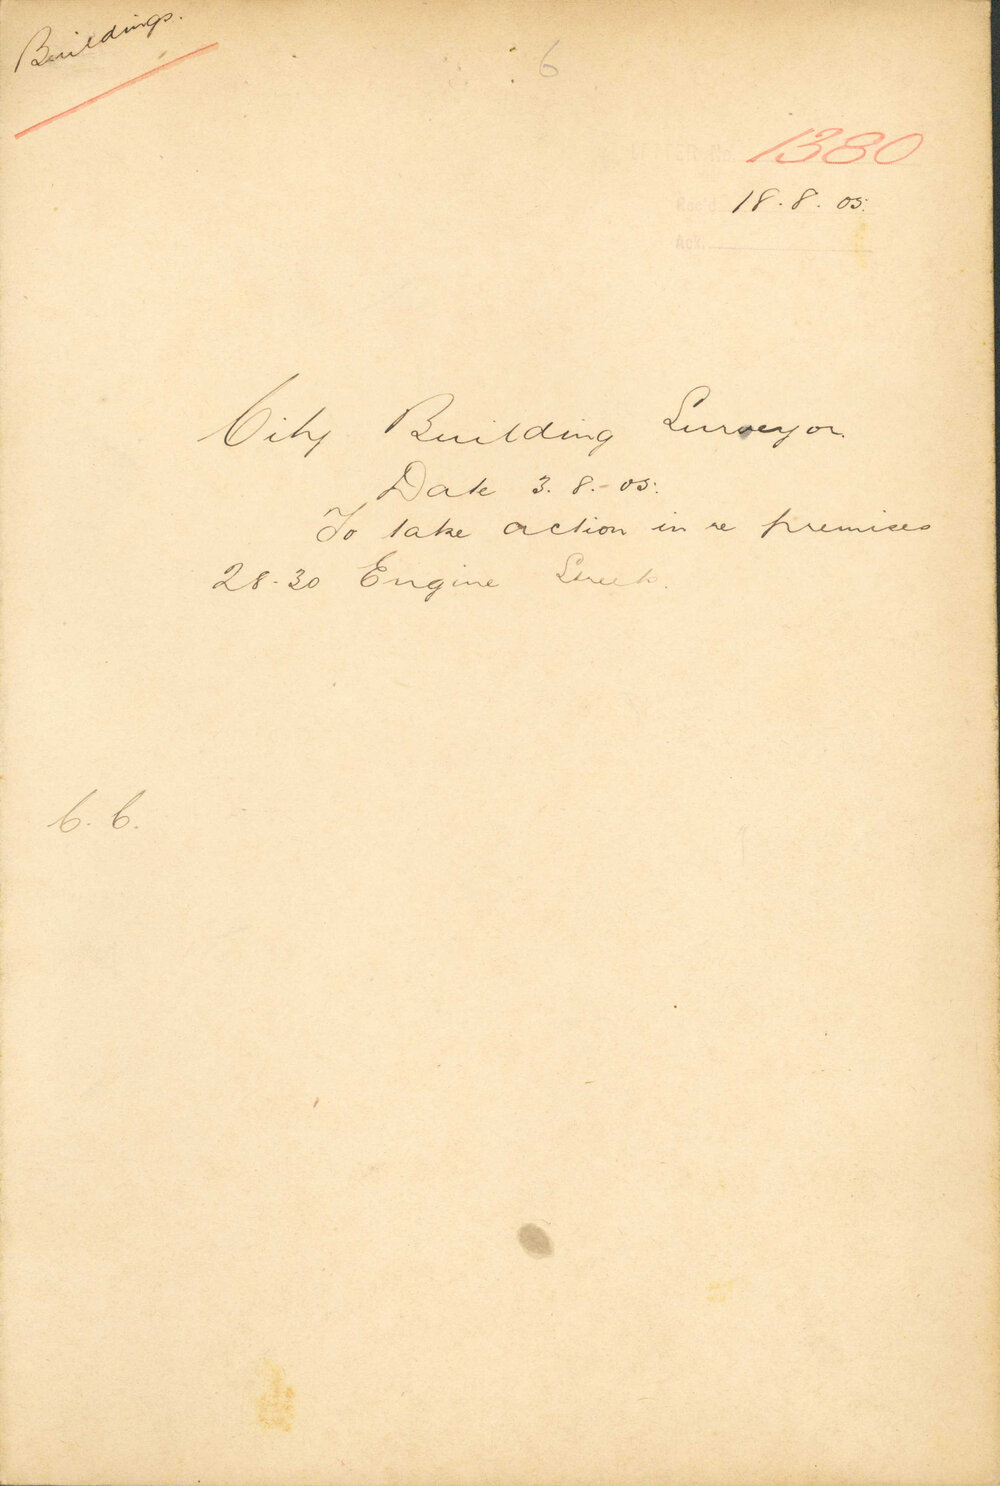 Buildings.
6
LETTER No. 1380
Rec'd 18.8.05.
Ack.
City Building Surveyor.
Date 3.8.-05.
To take action in re premises
28-30 Engine Street.